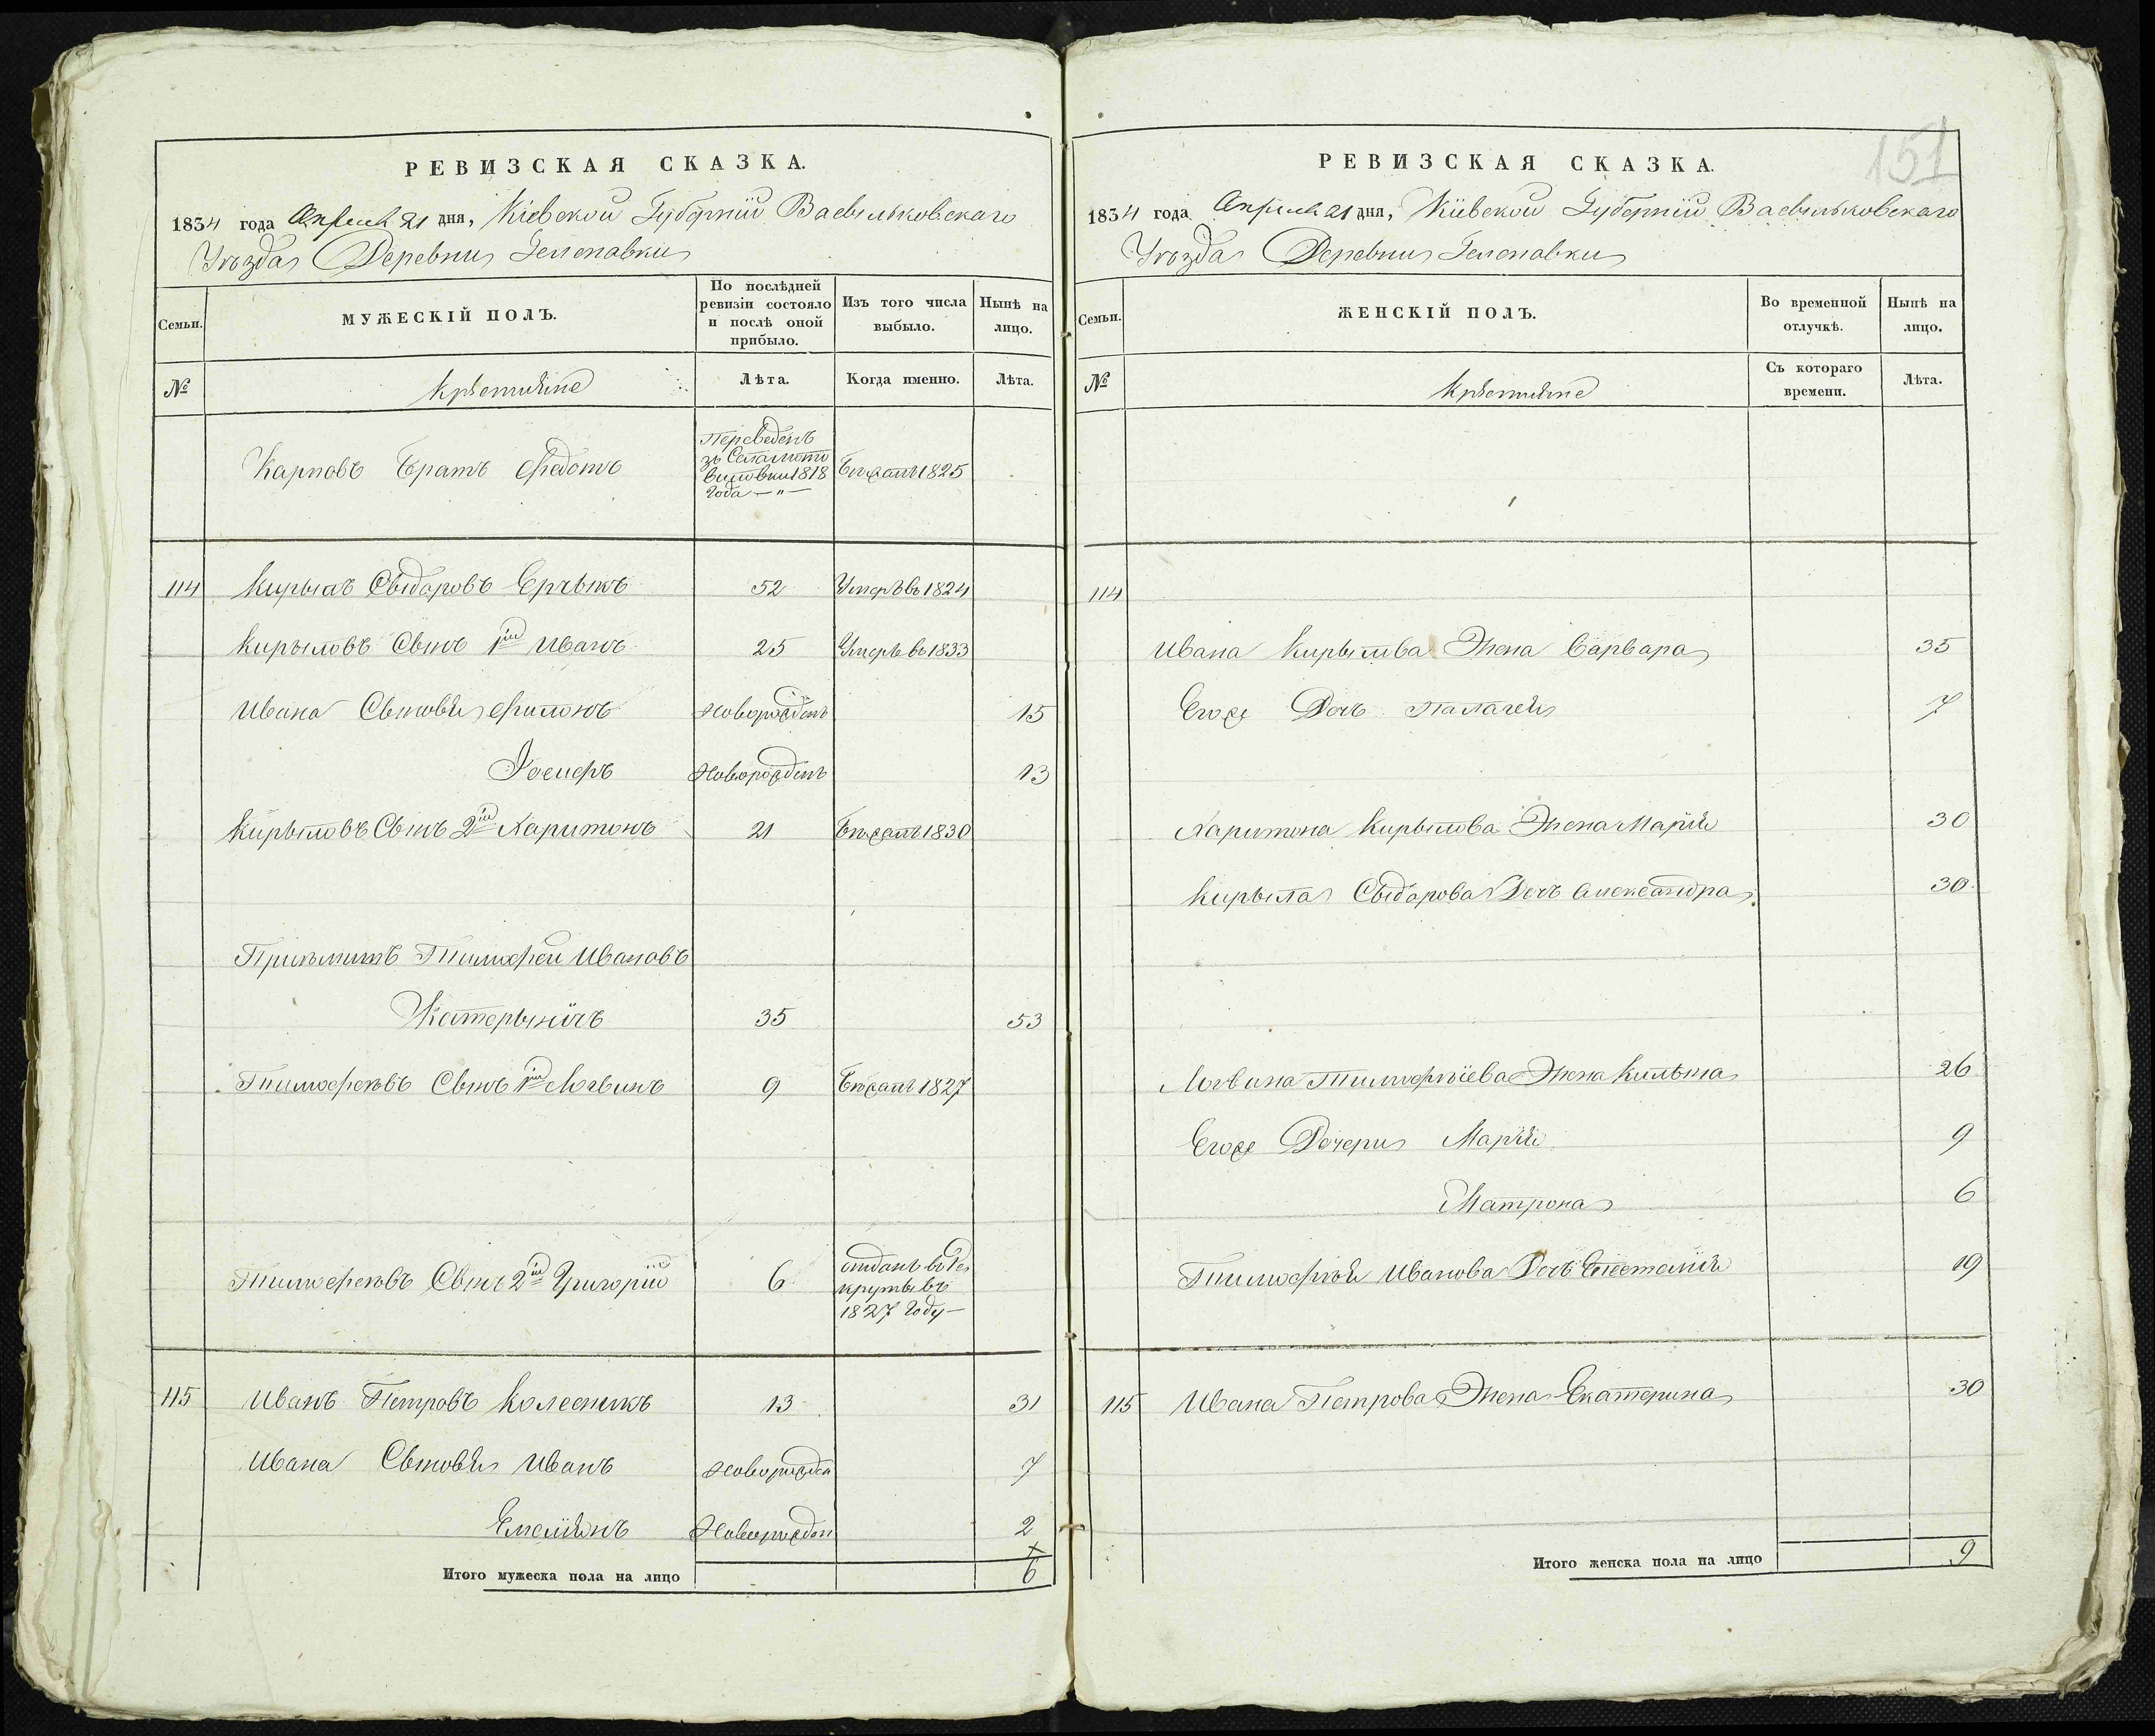 РЕВИЗСКАЯ СКАЗКА.
1834 года Апреля 21 дня, Кіевской Губерніи Васыльковскаго
Уѣзда Деревни
Семьи.
МУЖЕСКІЙ ПОЛЪ.
По послѣдней ревизіи состояло и послѣ оной прибыло.
Изъ того числа выбыло.
Нынѣ на лицо.
№
Лѣта.
Когда именно.
Лѣта.
Карповъ Братъ Федотъ
Переведенъ
зъ
1818
года — " —
Бѣжалъ 1825
114 Кирыла Сыдоровъ 52 Умеръ въ 1824
Кирыловъ Сынъ 1й Иванъ 25 Умеръ въ 1833
Ивана Сыновья Филонъ Новорожденъ 15
Іосифъ Новорожденъ 13
Кирыловъ Сынъ 2й Харитонъ 21 Бѣжалъ 1830
Тимофей Ивановъ
35 53
Тимофеевъ Сынъ 1й Логвинъ 9 Бѣжалъ 1827
Тимофеевъ Сынъ 2й Григорій 6 отданъ въ Ре
круты въ
1827 году —
115 Иванъ Петровъ Колесникъ 13 31
Ивана Сыновья Иванъ Новорожден 7
Емелиянъ Новорожден 2
Итого мужеска пола на лицо 6
151
РЕВИЗСКАЯ СКАЗКА.
1834 года Апреля 21 дня, Кіевской Губерніи Васыльковскаго
Уѣзда Деревни
Семьи.
ЖЕНСКІЙ ПОЛЪ.
Во временной отлучкѣ.
Нынѣ на лицо.
№
Съ котораго времени.
Лѣта.
114
Ивана Кирылова Жена Варвара 35
Егоже Дочь Палагея 7
Харитона Кирылова Жена Марія 30
Кирыла Сыдорова Дочь Александра 30
Логвина Тимофѣева Жена 26
Егоже Дочери Марія 9
Матрона 6
Тимофѣя Иванова Дочь 19
115 Ивана Петрова Жена Екатерина 30
Итого женска пола на лицо 9